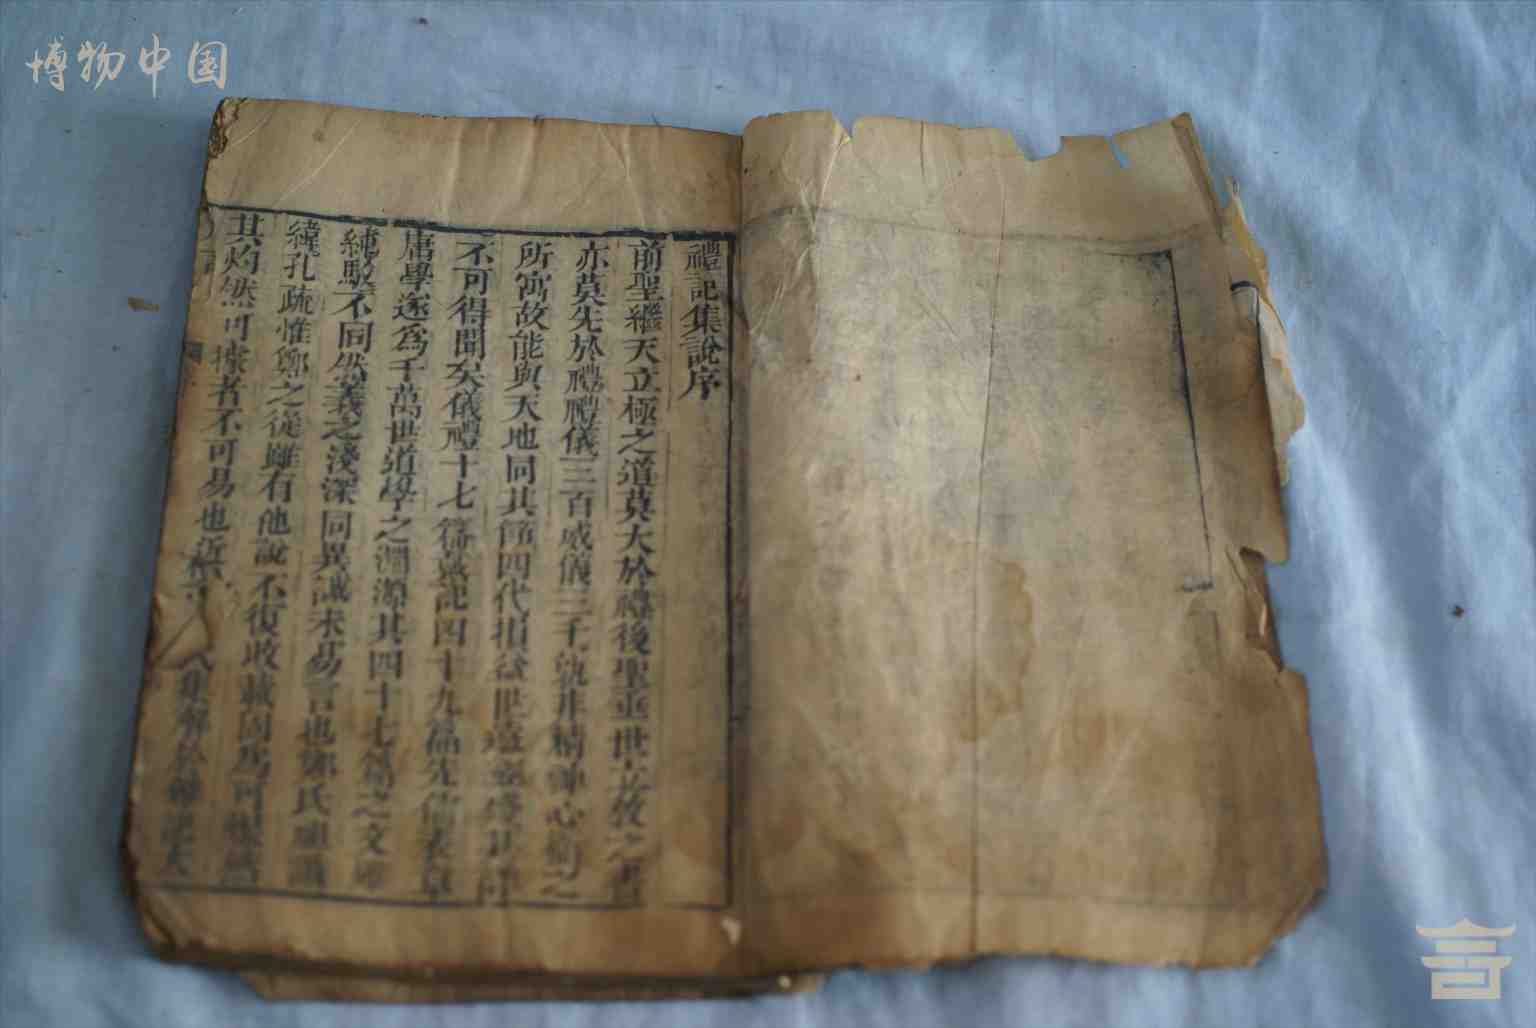 博物中国
禮記集說序
前聖繼天立極之道莫大於禮後聖垂世立教之書
亦莫先於禮禮儀三百威儀三千孰非精神心術之
所寓故能與天地同其節四代損益世遠經
不可得聞矣儀禮十七篇戴記四十九篇先儒表章
庸學遂爲千萬世道學之淵源其四十七篇之文雖
純駁不同然義之淺深同異誠未易言也鄭氏祖讖
緯孔疏惟鄭之從雖有他說不復收載固爲可恨然
其灼然可據者不可易也近 集解於